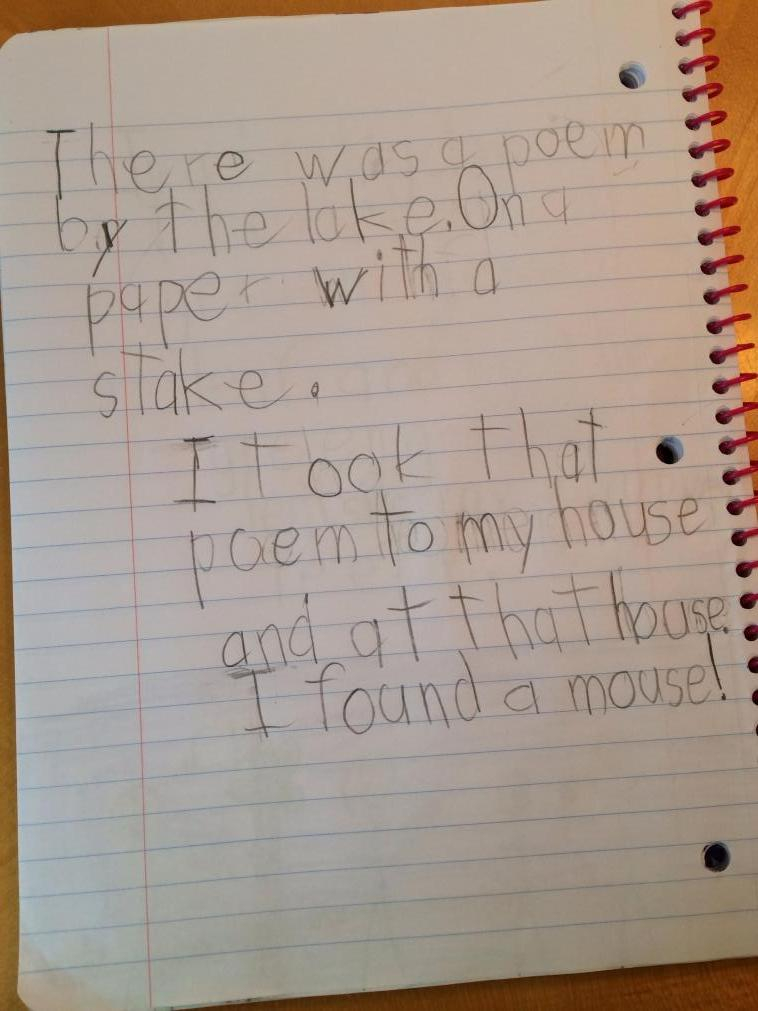 There was a poem
by the lake. On a
paper with a
stake.
I took that
poem to my house
and at that house.
I found a mouse!